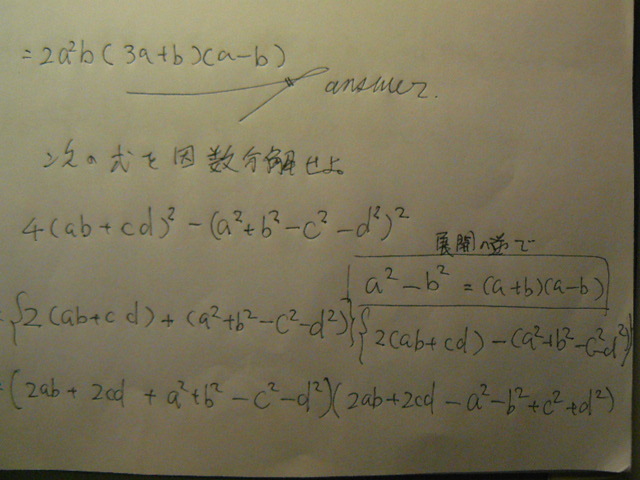 = 2a²b(3a+b)(a-b)
answer.
次の式を因数分解せよ
4(ab+cd)² - (a²+b²-c²-d²)²
展開の逆で
a² - b² = (a+b)(a-b)
={2(ab+cd) + (a²+b²-c²-d²)}{2(ab+cd) - (a²+b²-c²-d²)}
=(2ab+2cd+a²+b²-c²-d²)(2ab+2cd-a²-b²+c²+d²)